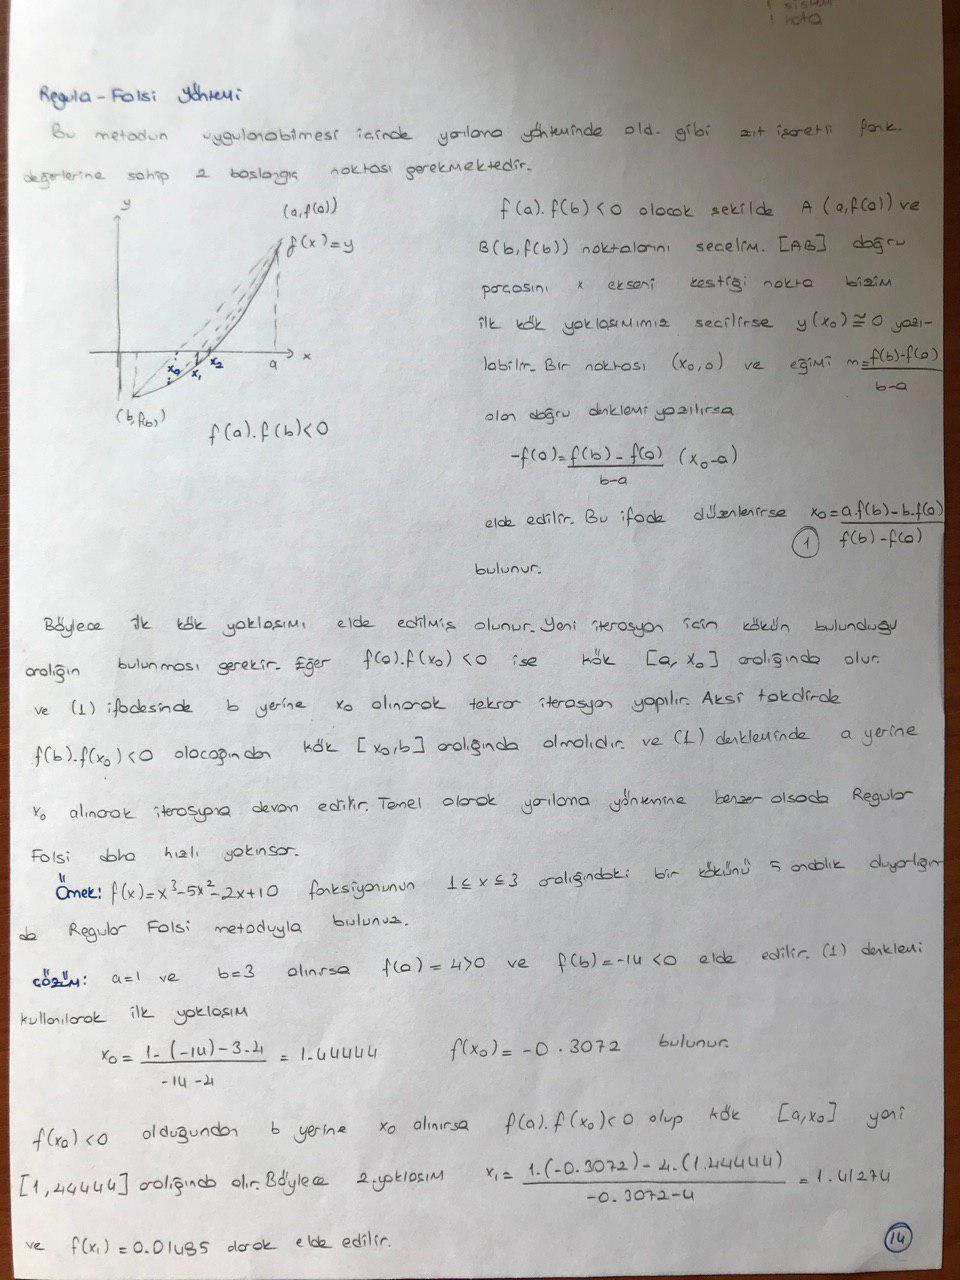 sistem
nota
Regula-Falsi Yöntemi
Bu metodun uygulanabilmesi icinde yarılama yönteminde old. gibi zıt isaretli fonk.
değerlerine sahip 2 baslangıç noktası gerekmektedir.
y
(a,f(a))
f(x)=y
x
a
x₀
x₁
x₂
(b,f(b))
f(a).f(b)<0
f(a).f(b)<0 olacak sekilde A(a,f(a)) ve
B(b,f(b)) noktalarını secelim. [AB] doğru
parçasını x ekseni kestiği nokta bizim
ilk kök yaklasımımız secilirse y(x₀)≅0 yazı-
labilir. Bir noktası (x₀,0) ve eğimi m=f(b)-f(a)/b-a
olan doğru denklemi yazılırsa
-f(a)=f(b)-f(a)/b-a (x₀-a)
elde edilir. Bu ifade düzenlenirse x₀=a.f(b)-b.f(a)/f(b)-f(a)
1
bulunur.
Böylece ilk kök yaklasımı elde edilmis olunur. Yeni iterasyon icin kökün bulunduğu
aralığın bulunması gerekir. Eğer f(a).f(x₀)<0 ise kök [a,x₀] aralığında olur.
ve (1) ifadesinde b yerine x₀ alınarak tekrar iterasyon yapılır. Aksi takdirde
f(b).f(x₀)<0 olacağından kök [x₀,b] aralığında olmalıdır. ve (1) denkleminde a yerine
x₀ alınarak iterasyona devam edilir. Temel olarak yarılama yöntemine benzer olsada Regular
Falsi daha hızlı yakınsar.
Örnek: f(x)=x³-5x²-2x+10 fonksiyonunun 1≤x≤3 aralığındaki bir kökünü 5 ondalık duyarlığın
da Regular Falsi metoduyla bulunuz.
Çözüm: a=1 ve b=3 alınırsa f(a)=4>0 ve f(b)=-14<0 elde edilir. (1) denklemi
kullanılarak ilk yaklasım
x₀=1.(-14)-3.4/-14-4 = 1.44444 f(x₀)=-0.3072 bulunur.
f(x₀)<0 olduğundan b yerine x₀ alınırsa f(a).f(x₀)<0 olup kök [a,x₀] yani
[1,44444] aralığında olır. Böylece 2.yaklasım x₁=1.(-0.3072)-4.(1.44444)/-0.3072-4 = 1.41274
ve f(x₁)=0.01485 olarak elde edilir.
14